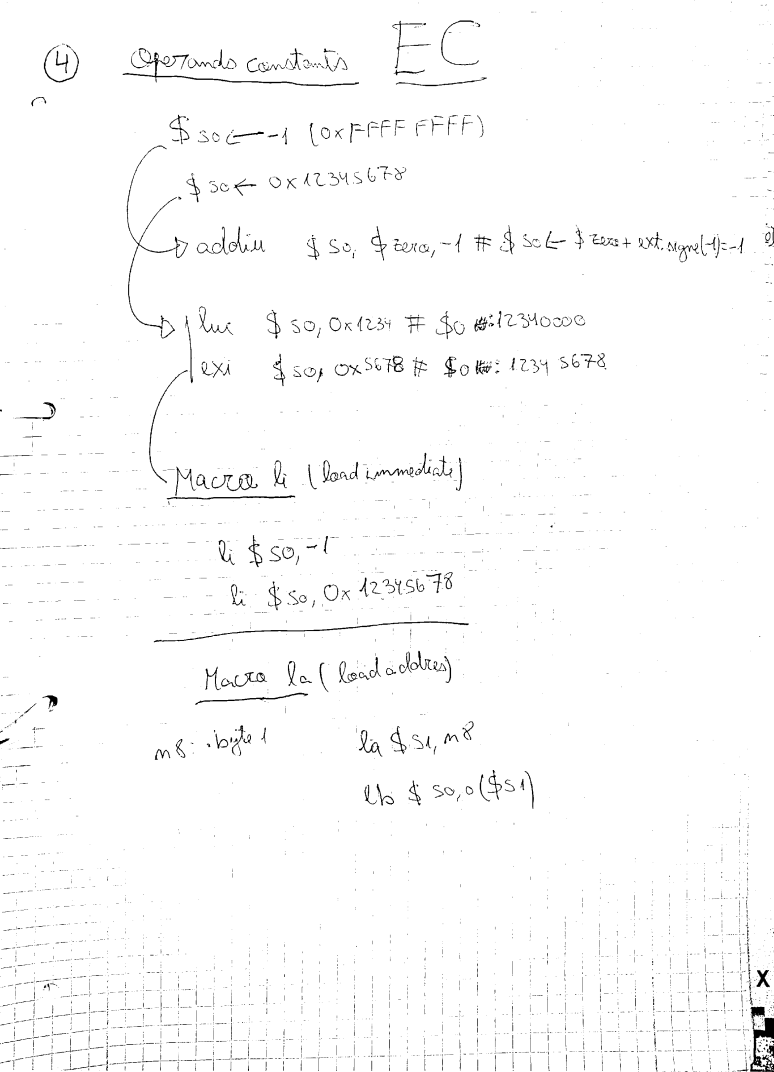 ④ Operando constants EC
$s0 ← -1 (0xFFFF FFFF)
$s0 ← 0x12345678
addiu $s0, $zero, -1 # $s0 ← $zero + ext. signe(-1)=-1
lui $s0, 0x1234 # $0 : 12340000
exi $s0, 0x5678 # $0 : 1234 5678
Macro li (load immediate)
li $s0, -1
li $s0, 0x12345678
Macro la (load addres)
m8: .byte 1 la $s1, m8
lb $s0, 0($s1)
X